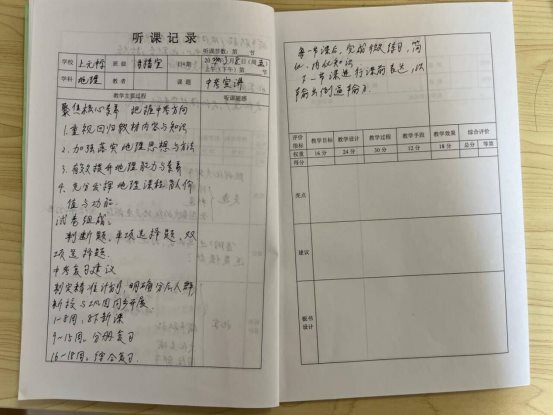 听课记录
听课节数：第 节
学校 上元中学 班级 录播室 日期
上午（下午）第 节
学科 地理 教者 课题 中考宣讲
教学主要过程 听课随感
聚焦核心素养 把握中考方向
1. 重视回归教材内容与知识
2. 加强落实地理思想与方法
3. 有效提升地理能力与素养
4. 充分发挥地理课程育人价
值与功能.
试卷组成.
判断题, 单项选择题, 双
项选择题.
中考复习建议
制定精准计划, 明确分层人群
新授与巩固同步开展
1-8周, 8下新课
9-15周. 分册复习
16-18周. 综合复习.
每一节课后, 完整做练习, 简
化, 内化知识
下一节课进行课前表述, 以
输出倒逼输入.
评价指标 教学目标 教学设计 教学过程 教学手段 教学效果 综合评价
权重 16分 24分 30分 12分 18分 总分 等第
得分
亮点
建议
板书设计